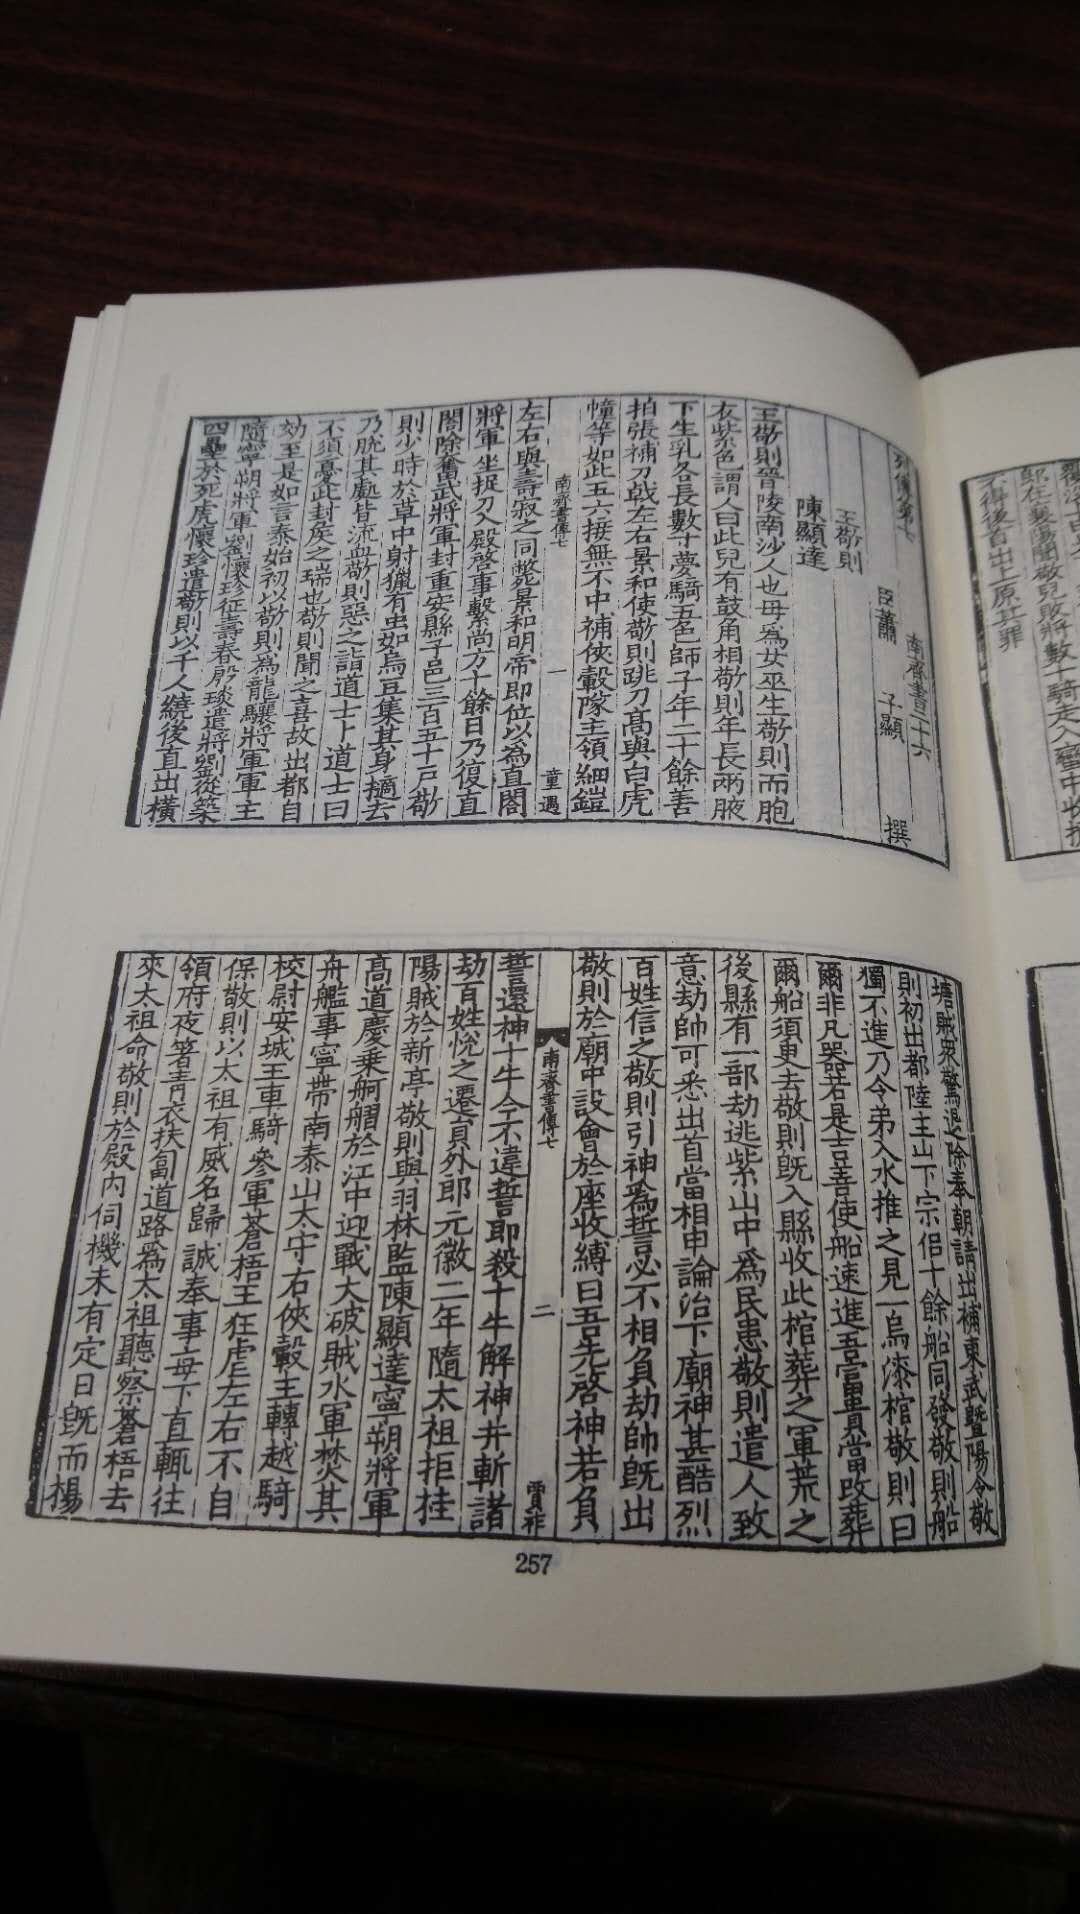 覆沒上由是
郎在襄陽聞敬兒敗將數十騎走入蠻中收捕
不得後首出上原其罪
列傳第七
南齊書二十六
臣蕭 子顯 撰
王敬則
陳顯達
王敬則晉陵南沙人也母爲女巫生敬則而胞
衣紫色謂人曰此兒有鼓角相敬則年長兩腋
下生乳各長數寸夢騎五色師子年二十餘善
拍張補刀戟左右景和使敬則跳刀髙與白虎
幢等如此五六接無不中補俠轂隊主領細鎧
南齊書傳七
一
童遇
左右與壽寂之同斃景和明帝即位以為直閤
將軍坐捉刀入殿啓事繫尚方十餘日乃復直
閤除奮武將軍封重安縣子邑三百五十戸敬
則少時於草中射獵有虫如烏豆集其身擿去
乃脫其處皆流血敬則惡之詣道士卜道士曰
不須憂此封侯之瑞也敬則聞之喜故出都自
効至是如言泰始初以敬則為龍驤將軍軍主
隨寧朔將軍劉懷珍征壽春殷琰遣將劉從築
四壘於死虎懷珍遣敬則以千人繞後直出橫
塘賊衆驚退除奉朝請出補東武暨陽令敬
則初出都陸主山下宗侶十餘船同發敬則船
獨不進乃令弟入水推之見一烏漆棺敬則曰
爾非凡器若是吉善使船速進吾富貴當改葬
爾船須臾去敬則旣入縣收此棺葬之軍荒之
後縣有一部劫逃紫山中爲民患敬則遣人致
意劫帥可悉出首當相申論治下廟神甚酷烈
百姓信之敬則引神爲誓必不相負劫帥旣出
敬則於廟中設會於座收縛曰吾先啓神若負
南齊書傳七
二
賈祚
誓還神十牛今不違誓即殺十牛解神并斬諸
劫百姓悅之遷員外郎元徽二年隨太祖拒桂
陽賊於新亭敬則與羽林監陳顯達寧朔將軍
髙道慶乗舸䑽於江中迎戰大破賊水軍焚其
舟艦事寧帶南泰山太守右俠轂主轉越騎
校尉安城王車騎參軍蒼梧王狂虐左右不自
保敬則以太祖有威名歸誠奉事每下直輒往
領府夜著青衣扶匐道路爲太祖聽察蒼梧去
來太祖命敬則於殿內伺機未有定日旣而楊
257